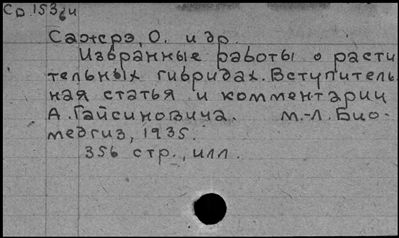 Со 153би
Сажрэ, О. и др.
Избранные работы о расти
тельных гибридах. Вступитель
ная статья и комментарии
А. Гайсиновича. М.-Л. Био-
медгиз, 1935.
356 стр., илл.